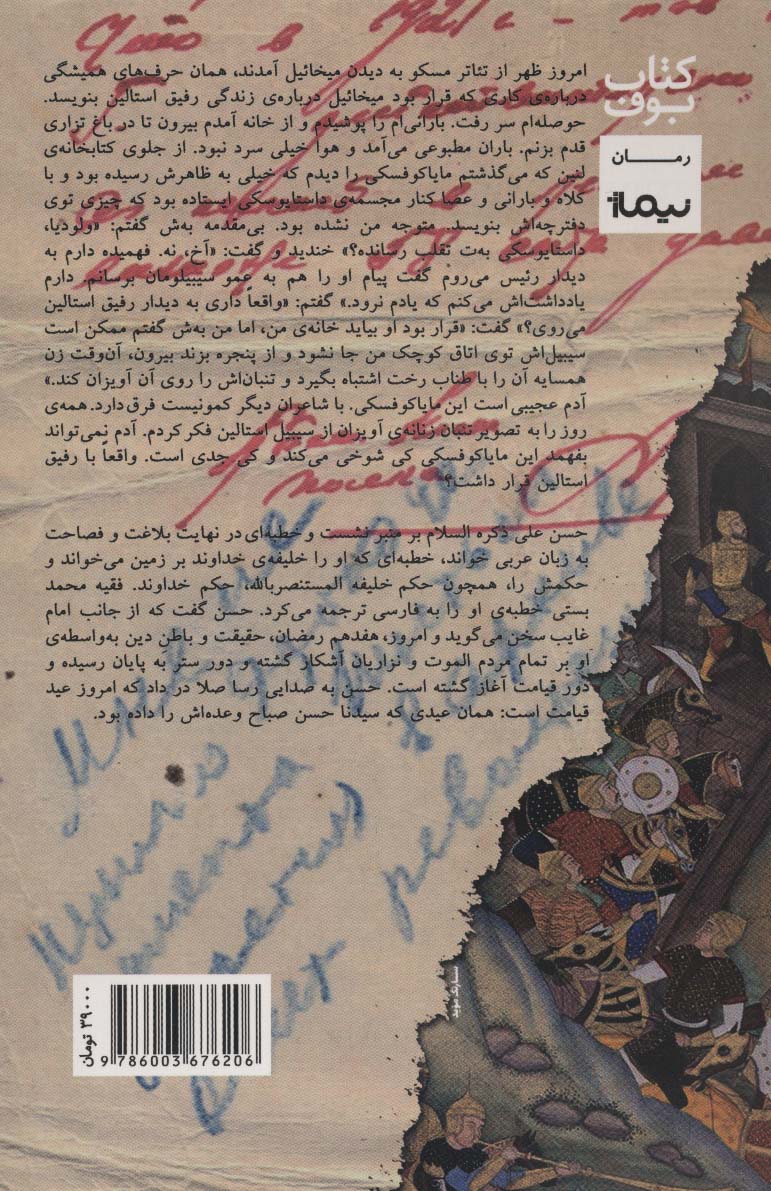 کتاب
بوف
رمان
نیماژ
امروز ظهر از تئاتر مسکو به دیدن میخائیل آمدند، همان حرف‌های همیشگی
درباره‌ی کاری که قرار بود میخائیل درباره‌ی زندگی رفیق استالین بنویسد.
حوصله‌ام سر رفت. بارانی‌ام را پوشیدم و از خانه آمدم بیرون تا در باغ تزاری
قدم بزنم. باران مطبوعی می‌آمد و هوا خیلی سرد نبود. از جلوی کتابخانه‌ی
لنین که می‌گذشتم مایاکوفسکی را دیدم که خیلی به ظاهرش رسیده بود و با
کلاه و بارانی و عصا کنار مجسمه‌ی داستایوسکی ایستاده بود که چیزی توی
دفترچه‌اش بنویسد. متوجه من نشده بود. بی‌مقدمه به‌ش گفتم: «ولودیا،
داستایوسکی به‌ت تقلب رسانده؟» خندید و گفت: «آخ، نه. فهمیده دارم به
دیدار رئیس می‌روم گفت پیام او را هم به عمو سیبیلومان برسانم. دارم
یادداشت‌اش می‌کنم که یادم نرود.» گفتم: «واقعاً داری به دیدار رفیق استالین
می‌روی؟» گفت: «قرار بود او بیاید خانه‌ی من، اما من به‌ش گفتم ممکن است
سیبیل‌اش توی اتاق کوچک من جا نشود و از پنجره بزند بیرون، آن‌وقت زن
همسایه آن را با طناب رخت اشتباه بگیرد و تنبان‌اش را روی آن آویزان کند.»
آدم عجیبی است این مایاکوفسکی. با شاعران دیگر کمونیست فرق دارد. همه‌ی
روز را به تصویر تنبان زنانه‌ی آویزان از سیبیل استالین فکر کردم. آدم نمی‌تواند
بفهمد این مایاکوفسکی کی شوخی می‌کند و کی جدی است. واقعاً با رفیق
استالین قرار داشت؟
حسن علی ذکره السلام بر منبر نشست و خطبه‌ای در نهایت بلاغت و فصاحت
به زبان عربی خواند، خطبه‌ای که او را خلیفه‌ی خداوند بر زمین می‌خواند و
حکمش را، همچون حکم خلیفه المستنصربالله، حکم خداوند. فقیه محمد
بستی خطبه‌ی او را به فارسی ترجمه می‌کرد. حسن گفت که از جانب امام
غایب سخن می‌گوید و امروز، هفدهم رمضان، حقیقت و باطنِ دین به‌واسطه‌ی
او بر تمام مردم الموت و نزاریان آشکار گشته و دور ستر به پایان رسیده و
دور قیامت آغاز گشته است. حسن به صدایی رسا صلا در داد که امروز عید
قیامت است: همان عیدی که سیدنا حسن صباح وعده‌اش را داده بود.
۳۹۰۰۰ تومان
9 786003 676206